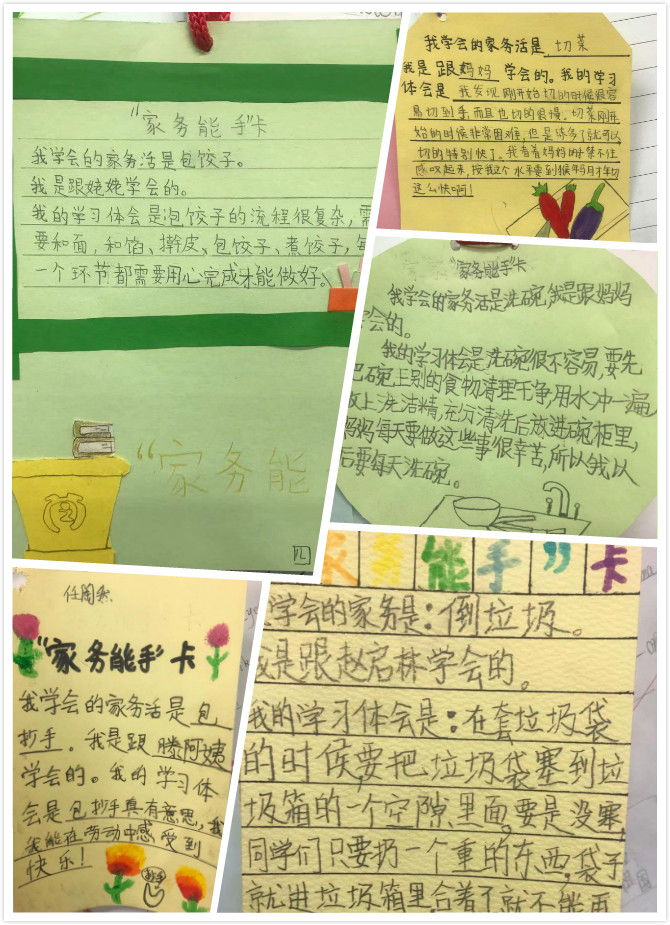 “家务能手”卡
我学会的家务活是包饺子。
我是跟姥姥学会的。
我的学习体会是包饺子的流程很复杂,需
要和面,和馅、擀皮、包饺子、煮饺子,每
一个环节都需要用心完成才能做好。
“家务能
我学会的家务活是 切菜
我是跟妈妈 学会的。我的学习
体会是 我发现刚开始切的时候很容
易切到手,而且也切的很慢。切菜刚开
始的时候非常困难,但是练多了就可以
切的特别快了。我看着妈妈的
感叹起来,按我这个水平要到猴年马月才切
这么快啊!
“家务能手”卡
我学会的家务活是洗碗,我是跟妈妈
学会的。
我的学习体会是洗碗很不容易,要先
把碗上剩的食物清理干净,用水冲一遍,
放上洗洁精,充分清洗后放进碗柜里,
妈妈每天要做这些事很辛苦,所以我以
后要每天洗碗。
任
“家务能手”卡
我学会的家务活是 包
抄手。我是跟 滕阿姨
学会的。我的学习体
会是包抄手真有意思,我
我能在劳动中感受到
快乐!
家务能手”卡
学会的家务是:倒垃圾。
我是跟赵启林学会的。
我的学习体会是:在套垃圾袋
的时候,要把垃圾袋塞到垃
圾箱的一个空隙里面,要是没塞,
同学们只要扔一个重的东西,袋子
就进垃圾箱里,合着了就不能再